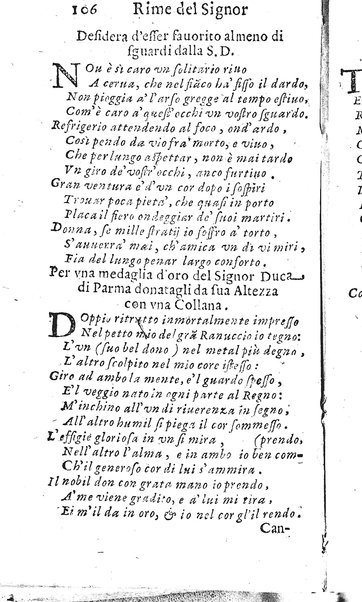 106 Rime del Signor
Desidera d'esser fauorito almeno di
sguardi dalla S. D.
NOn è sì caro vn solitario riuo
A cerua, che nel fiãco hà fisso il dardo,
Non pioggia à l'arso gregge al tempo estiuo,
Com'è caro à quest'occhi vn vostro sguardo.
Refrigerio attendendo al foco, ond'ardo,
Così pendo da vio frà morto, e viuo,
Che per lungo aspettar, non è mai tardo
Vn giro de' vostr'occhi, anco furtiuo.
Gran ventura è d'vn cor dopo i sospiri
Trouar poca pietà, che quasi in porto
Placa il fiero ondeggiar de' suoi martiri.
Donna, se mille stratij io soffro à torto,
S'auuerrà mai, ch'amica vn dì vi miri,
Fia del lungo penar largo conforto.
Per vna medaglia d'oro del Signor Duca
di Parma donatagli da sua Altezza
con vna Collana.
DOppio ritratto inmortalmente impresso
Nel petto mio del grã Ranuccio io tegno:
L'vn (suo bel dono) nel metal più degno,
L'altro scolpito nel mio core istesso:
Giro ad ambo la mente, e'l guardo spesso,
E'l veggio nato in ogni parte al Regno:
M'inchino all'vn di riuerenza in segno,
All'altro humil si piega il cor sommesso.
L'effigie gloriosa in vn si mira, (prendo,
Nell'altro l'alma, e in ambo io ben com-
Ch'il generoso cor di lui s'ammira.
Il nobil don con grata mano io prendo,
A' me viene gradito, e à lui mi tira,
Ei m'il dà in oro, & io nel cor gl'il rendo.
Can-